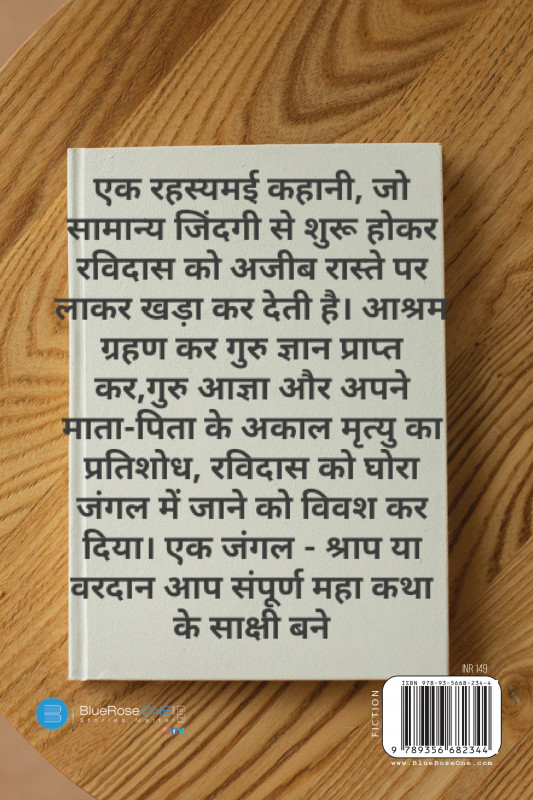 एक रहस्यमई कहानी, जो
सामान्य जिंदगी से शुरू होकर
रविदास को अजीब रास्ते पर
लाकर खड़ा कर देती है। आश्रम
ग्रहण कर गुरु ज्ञान प्राप्त
कर,गुरु आज्ञा और अपने
माता-पिता के अकाल मृत्यु का
प्रतिशोध, रविदास को घोरा
जंगल में जाने को विवश कर
दिया। एक जंगल - श्राप या
वरदान आप संपूर्ण महा कथा
के साक्षी बने
INR 149
ISBN 978-93-5668-234-4
FICTION
BlueRoseONE
Stories Matter
9 789356 682344
www.BlueRoseOne.com